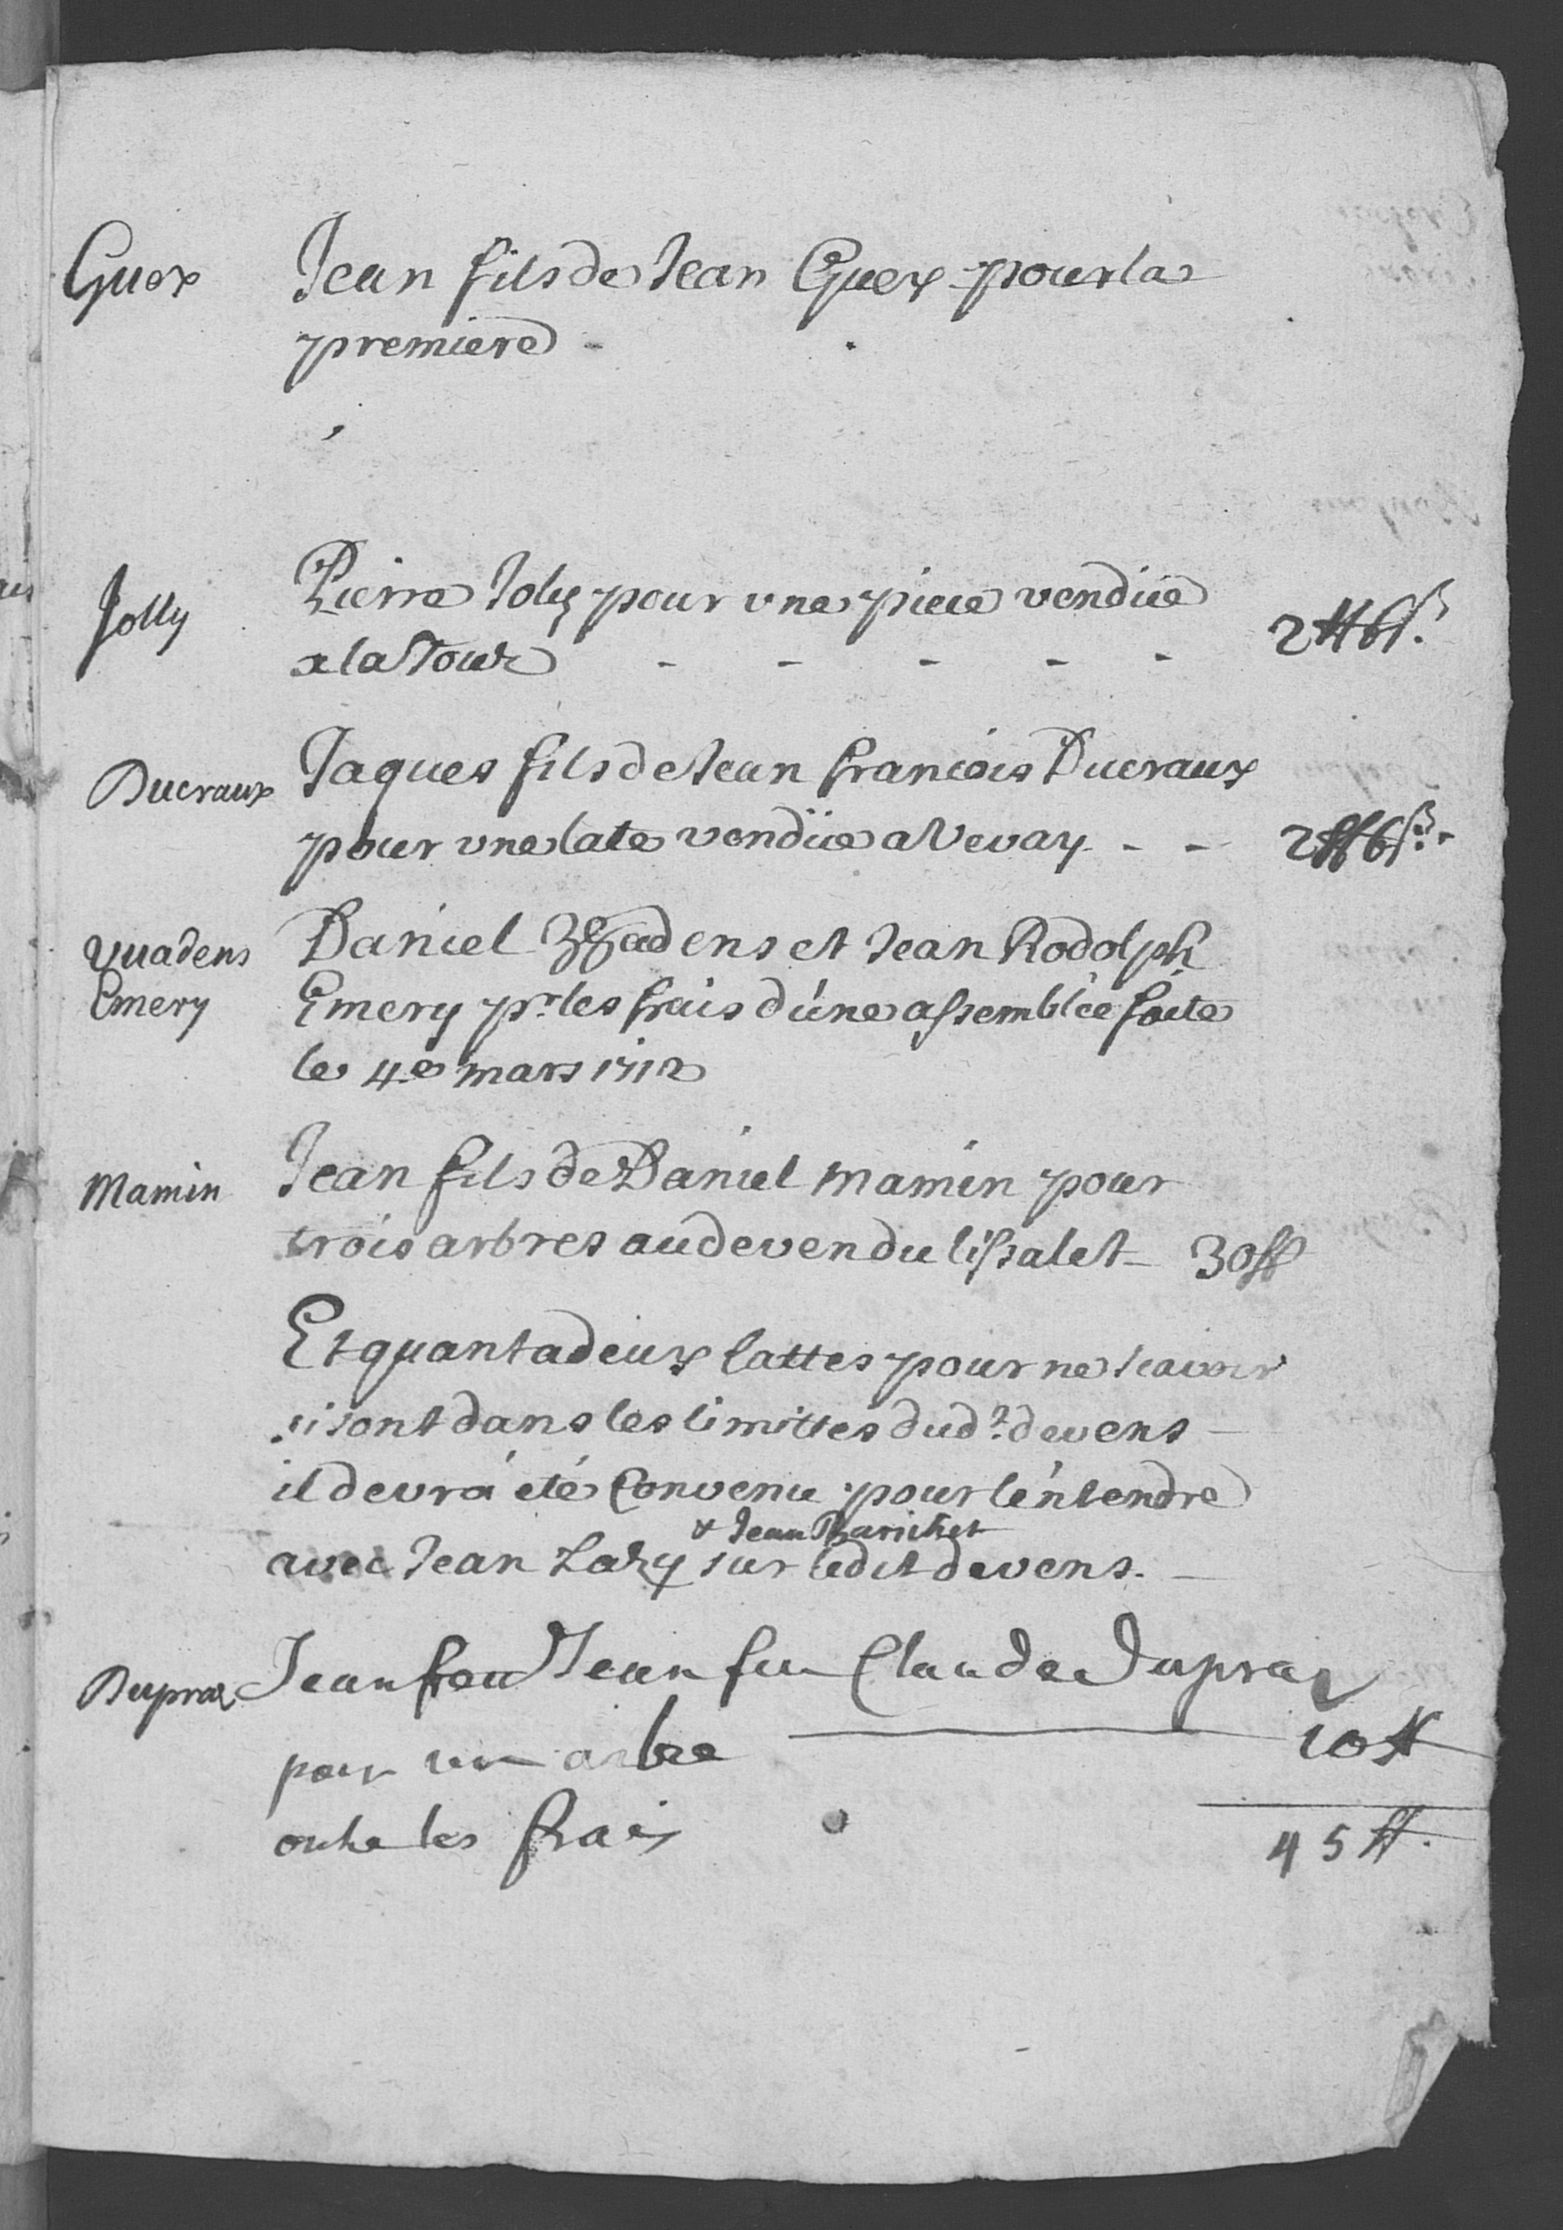 Guex Jean fils de Jean Guex pour la
premiere -
Jolly Pierre Joly pour vne piece vendüe
a la Tour - - - - - 2 ff 6 s.
Ducraux Jaques fils de Jean francois Ducraux
pour vne late vendüe a Vevay - - 2 ff 6 s. -
Vuadens Daniel Vuadens et Jean Rodolph
Emery Emery pr. les frais d'úne assemblée faite
le 4e mars 1712
Mamin Jean fils de Daniel Mamin pour
trois arbres au deven du lissalet - 30 ff
Et quant a deux lattes pour ne scavoir
si sont dans les limittes dudt. devens -
il devrá eté Convenu pour léntendre
& Jean
avec Jean sur ledit devens. -
Dupraz Jean feu Jean feu Claude Dupraz
pour un arbre 10 ff
outre les frais 45 ff.